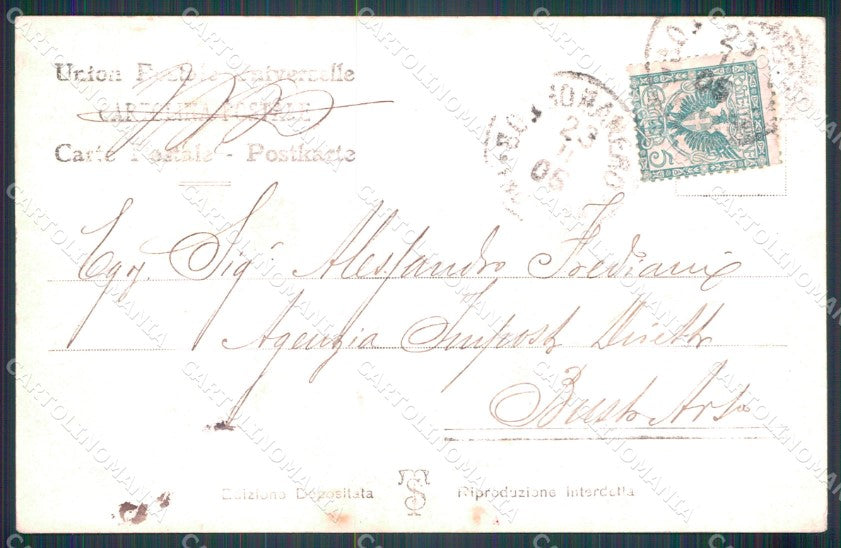 Union Postale Universelle
CARTOLINA POSTALE
Carte Postale - Postkarte
23
05
23
05
5
Egr. Sigr Alessandro Frediani
Agenzia Imposte Dirette
Busto Arso
Edizione Depositata
Riproduzione Interdetta
CARTOLINOMANIA